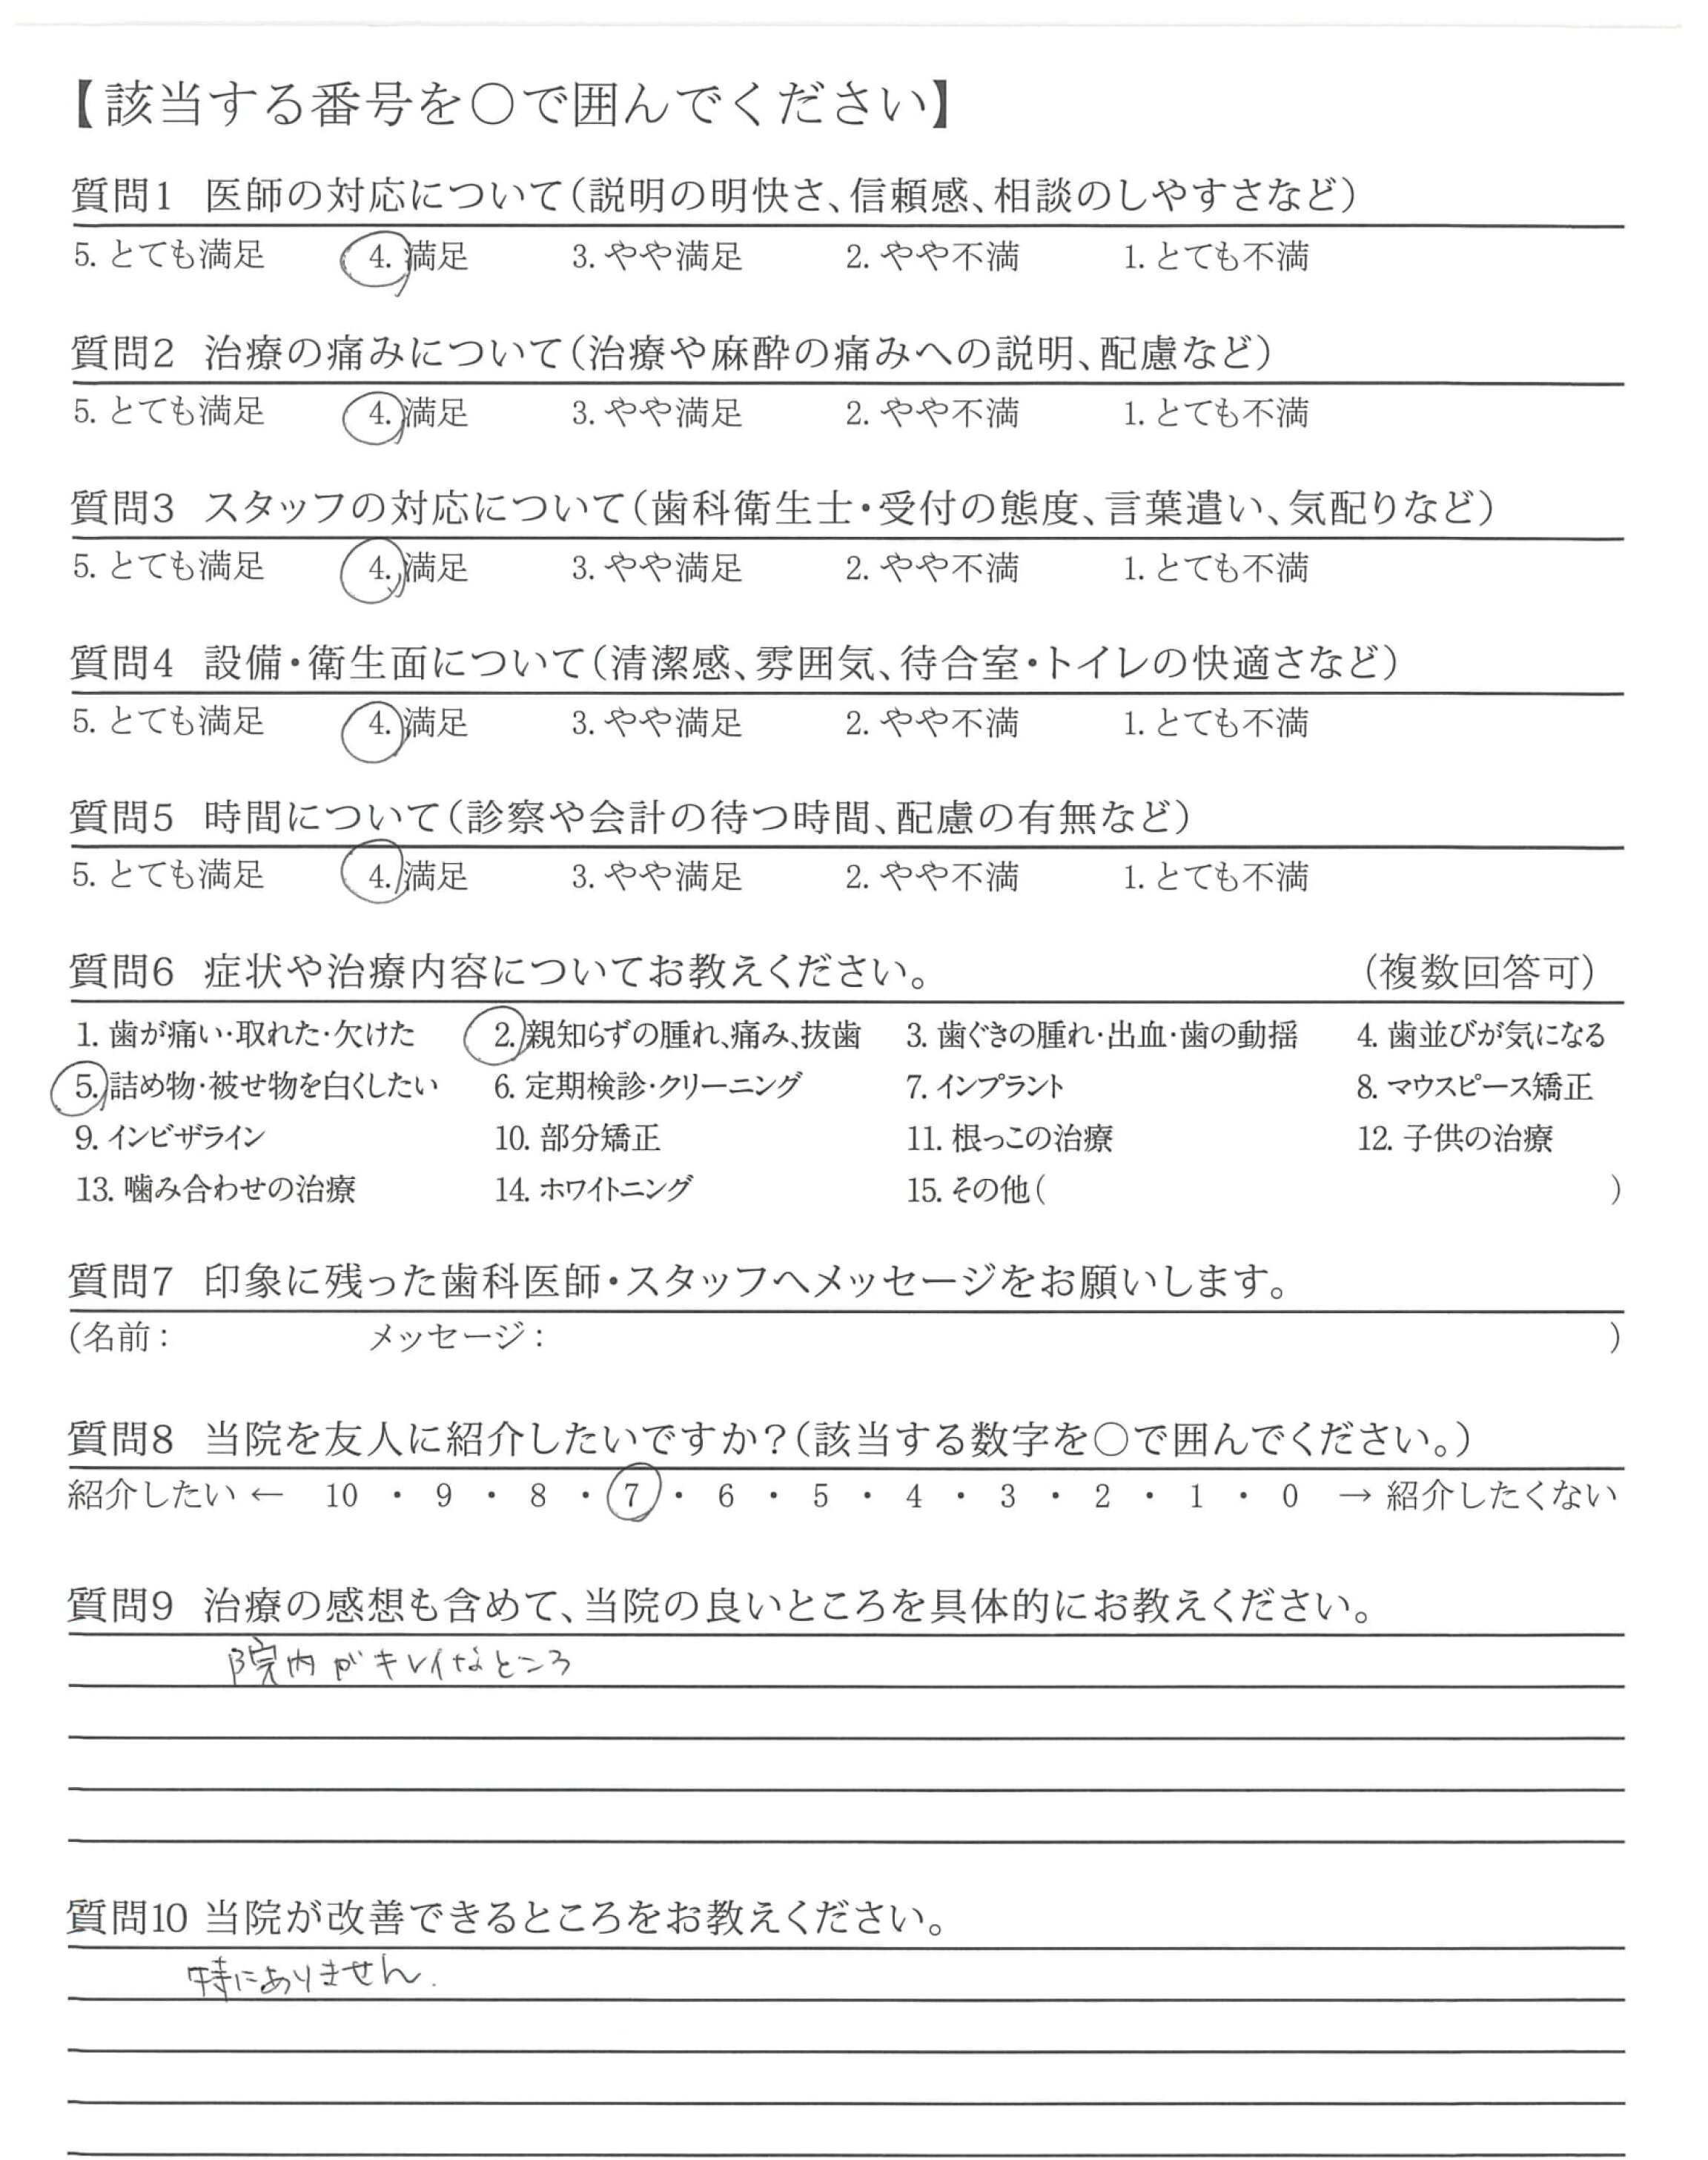 【該当する番号を○で囲んでください】
質問1 医師の対応について(説明の明快さ、信頼感、相談のしやすさなど)
5. とても満足 4. 満足 3. やや満足 2. やや不満 1. とても不満
質問2 治療の痛みについて(治療や麻酔の痛みへの説明、配慮など)
5. とても満足 4. 満足 3. やや満足 2. やや不満 1. とても不満
質問3 スタッフの対応について(歯科衛生士・受付の態度、言葉遣い、気配りなど)
5. とても満足 4. 満足 3. やや満足 2. やや不満 1. とても不満
質問4 設備・衛生面について(清潔感、雰囲気、待合室・トイレの快適さなど)
5. とても満足 4. 満足 3. やや満足 2. やや不満 1. とても不満
質問5 時間について(診察や会計の待つ時間、配慮の有無など)
5. とても満足 4. 満足 3. やや満足 2. やや不満 1. とても不満
質問6 症状や治療内容についてお教えください。 (複数回答可)
1. 歯が痛い・取れた・欠けた 2. 親知らずの腫れ、痛み、抜歯 3. 歯ぐきの腫れ・出血・歯の動揺 4. 歯並びが気になる
5. 詰め物・被せ物を白くしたい 6. 定期検診・クリーニング 7. インプラント 8. マウスピース矯正
9. インビザライン 10. 部分矯正 11. 根っこの治療 12. 子供の治療
13. 噛み合わせの治療 14. ホワイトニング 15. その他( )
質問7 印象に残った歯科医師・スタッフへメッセージをお願いします。
(名前: メッセージ: )
質問8 当院を友人に紹介したいですか?(該当する数字を○で囲んでください。)
紹介したい ← 10 ・ 9 ・ 8 ・ 7 ・ 6 ・ 5 ・ 4 ・ 3 ・ 2 ・ 1 ・ 0 → 紹介したくない
質問9 治療の感想も含めて、当院の良いところを具体的にお教えください。
院内がキレイなところ
質問10 当院が改善できるところをお教えください。
特にありません.